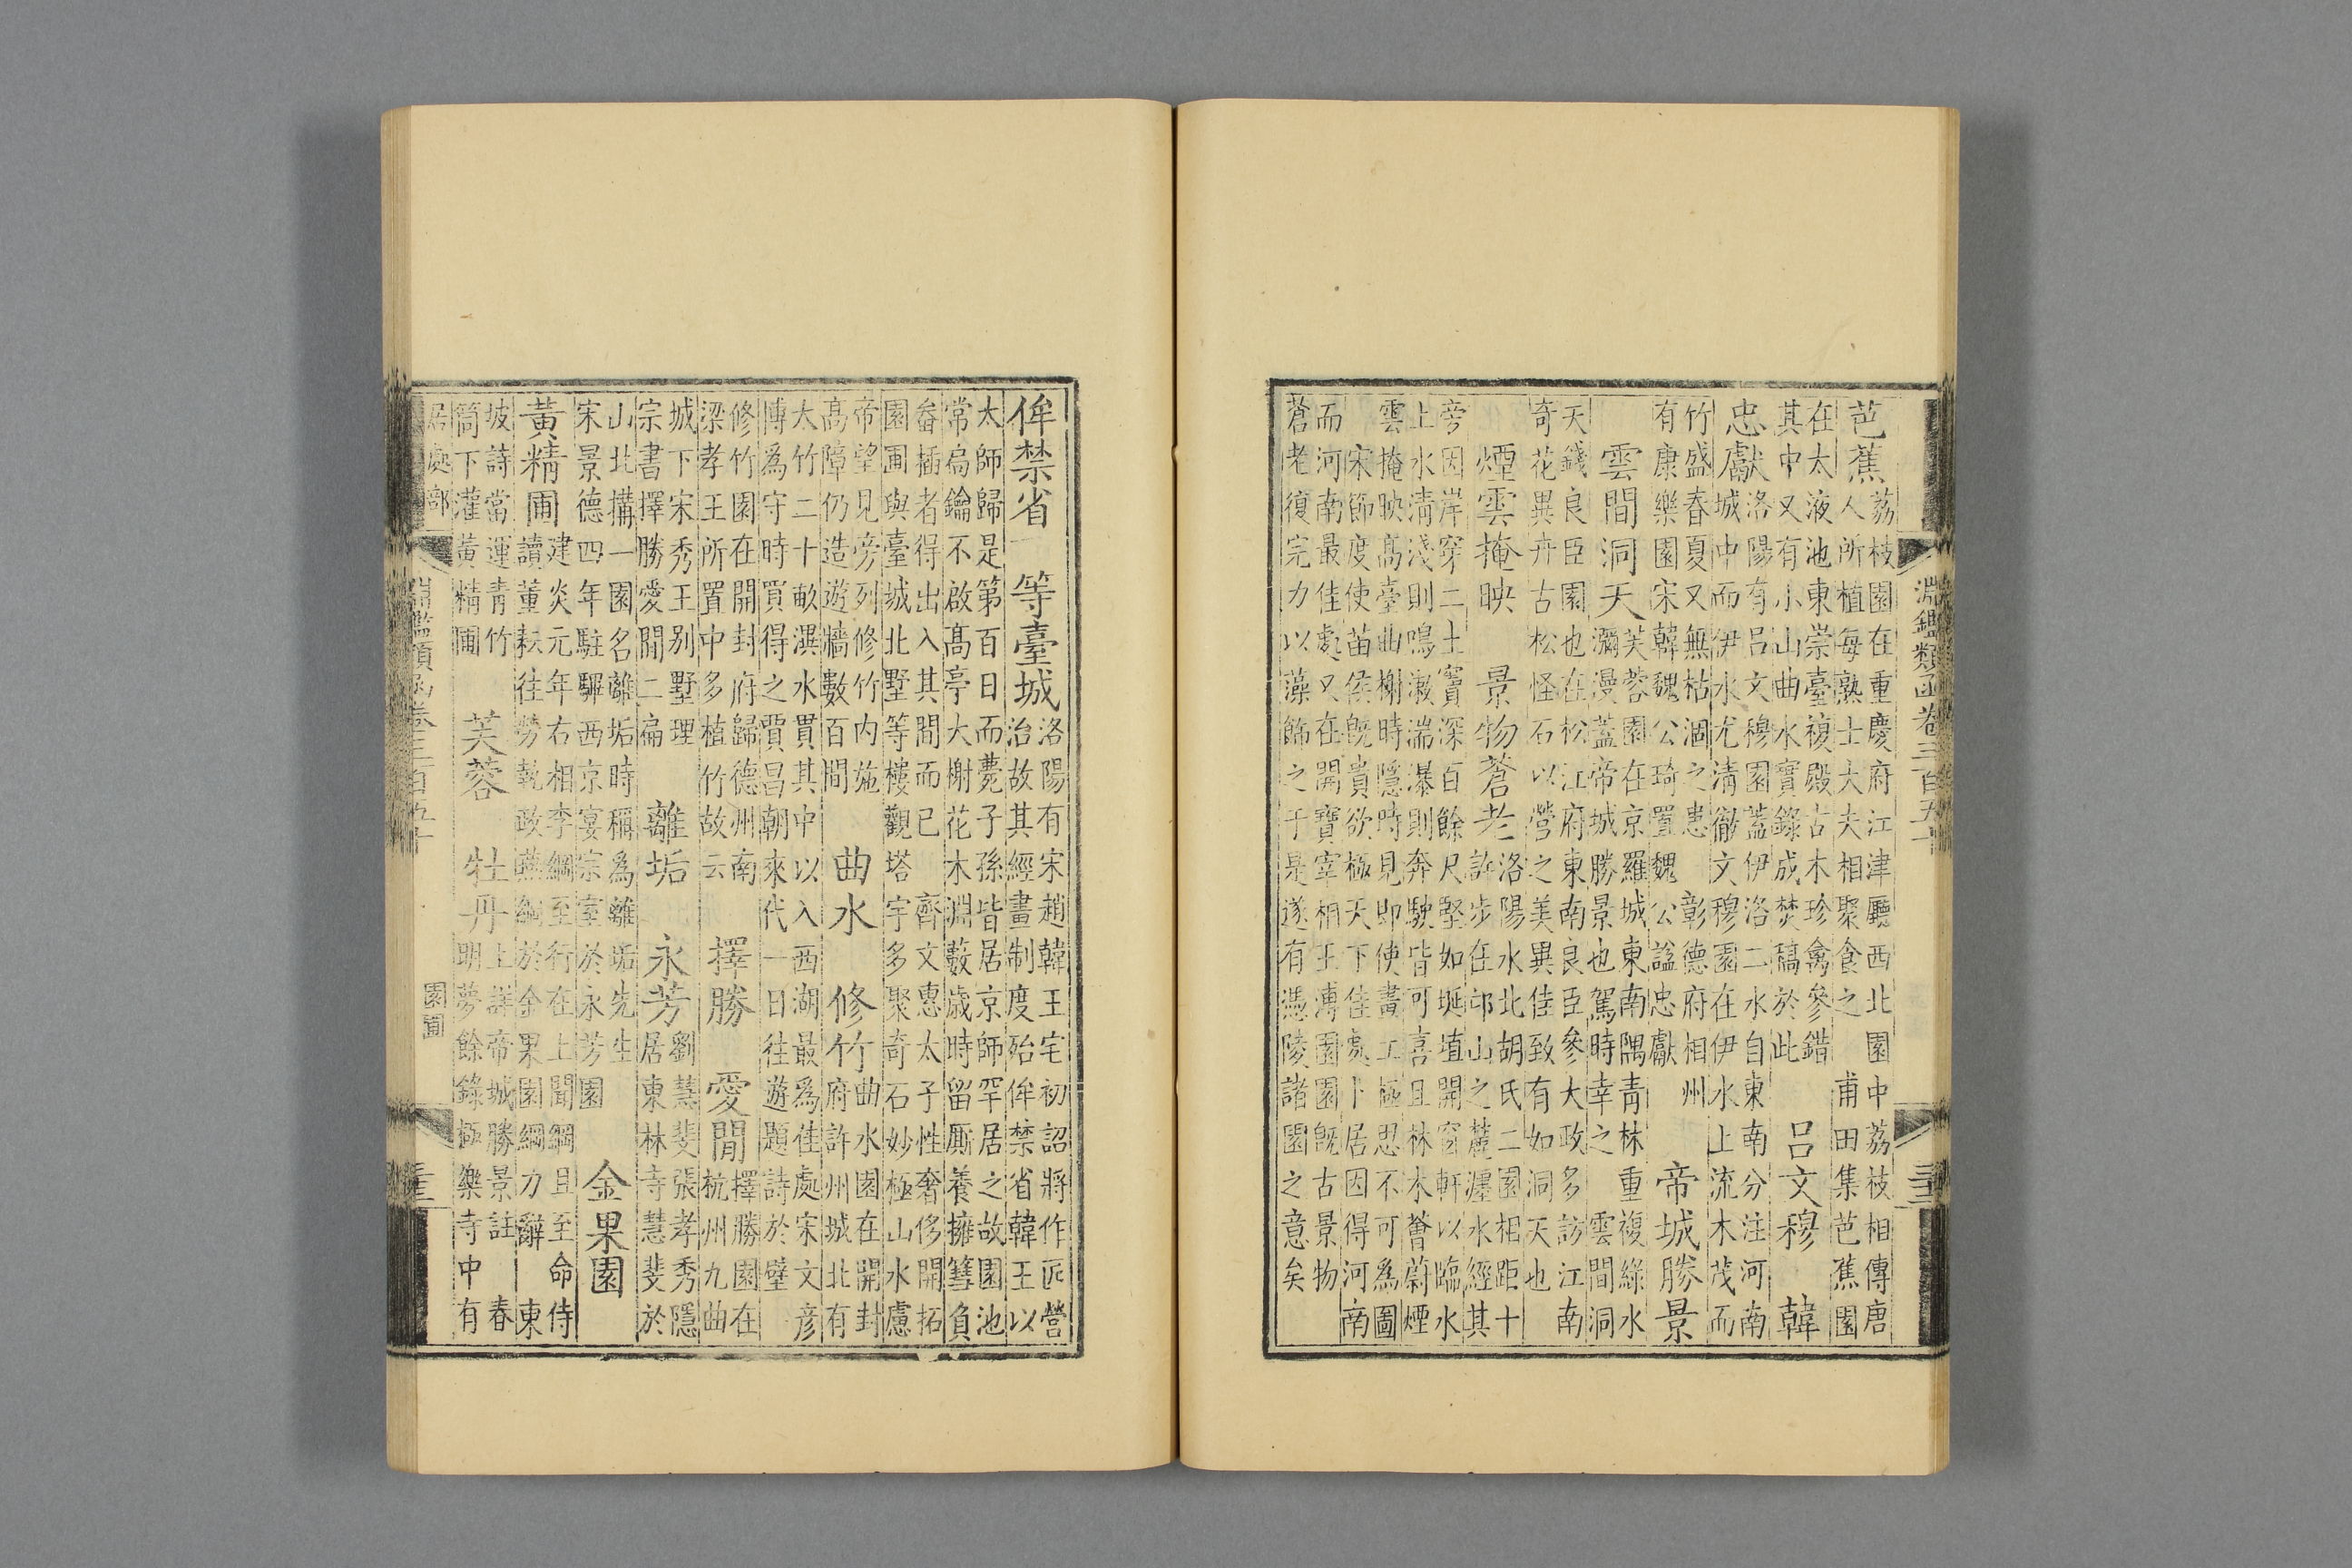 淵鑑類函卷三百五十
芭蕉
荔枝園在重慶府江津廳西北園中荔枝相傳唐
人所植每熟士大夫相聚食之 甫田集芭蕉園
在太液池東崇臺複殿古木珍禽參錯
其中又有小山曲水實錄成焚稿於此
呂文穆 韓
忠獻
洛陽有呂文穆園蓋伊洛二水自東南分注河南
城中而伊水尤清徹文穆園在伊水上流木茂而
竹盛春夏又無枯涸之患 彰德府相州
有康樂園宋韓魏公琦置魏公諡忠獻
帝城勝景
雲間洞天
芙蓉園在京羅城東南隅青林重複綠水
瀰漫蓋帝城勝景也駕時幸之 雲間洞
天錢良臣園也在松江府東南良臣參大政多訪江南
奇花異卉古松怪石以營之美異佳致有如洞天也
煙雲掩映 景物蒼老
洛陽水北胡氏二園相距十
許步在邙山之麓瀍水經其
旁因岸穿二土竇深百餘尺堅如埏埴開窗軒以臨水
上水清淺則鳴漱湍瀑則奔駛皆可喜且林木薈蔚煙
雲掩映高臺曲榭時隱時見即使畫工極思不可為圖
宋節度使苗侯既貴欲極天下佳處卜居因得河南
而河南最佳處又在開寶宰相王溥園園既古景物
蒼老復完力以藻飾之于是遂有憑陵諸園之意矣
侔禁省 等臺城
洛陽有宋趙韓王宅初詔將作匠營
治故其經畫制度殆侔禁省韓王以
太師歸是第百日而薨子孫皆居京師罕居之故園池
常扃鑰不啟高亭大榭花木淵藪歲時留廝養擁篲負
畚插者得出入其間而已 齊文惠太子性奢侈開拓
園圃與臺城北墅等樓觀塔宇多聚奇石妙極山水慮
帝望見旁列修竹內施
高障仍造遊牆數百間
曲水 修竹
曲水園在開封
府許州城北有
大竹二十畝潩水貫其中以入西湖最為佳處宋文彥
博為守時買得之賈昌朝來代一日往遊題詩於壁
修竹園在開封府歸德州南
梁孝王所置中多植竹故云
擇勝 愛閒
擇勝園在
杭州九曲
城下宋秀王別墅理
宗書擇勝愛閒二扁
離垢 永芳
劉慧斐張孝秀隱
居東林寺慧斐於
山北搆一園名離垢時稱為離垢先生
宋景德四年駐驆西京宴宗室於永芳園
金果園
黃精圃
建炎元年右相李綱至行在上聞綱且至命侍
讀董耘往勞執政燕綱於金果園綱力辭 東
坡詩當運青竹
筒下灌黃精圃
芙蓉 牡丹
上詳帝城勝景註 春
明夢餘錄極樂寺中有
居處部
淵鑑類函卷三百五十
園圃